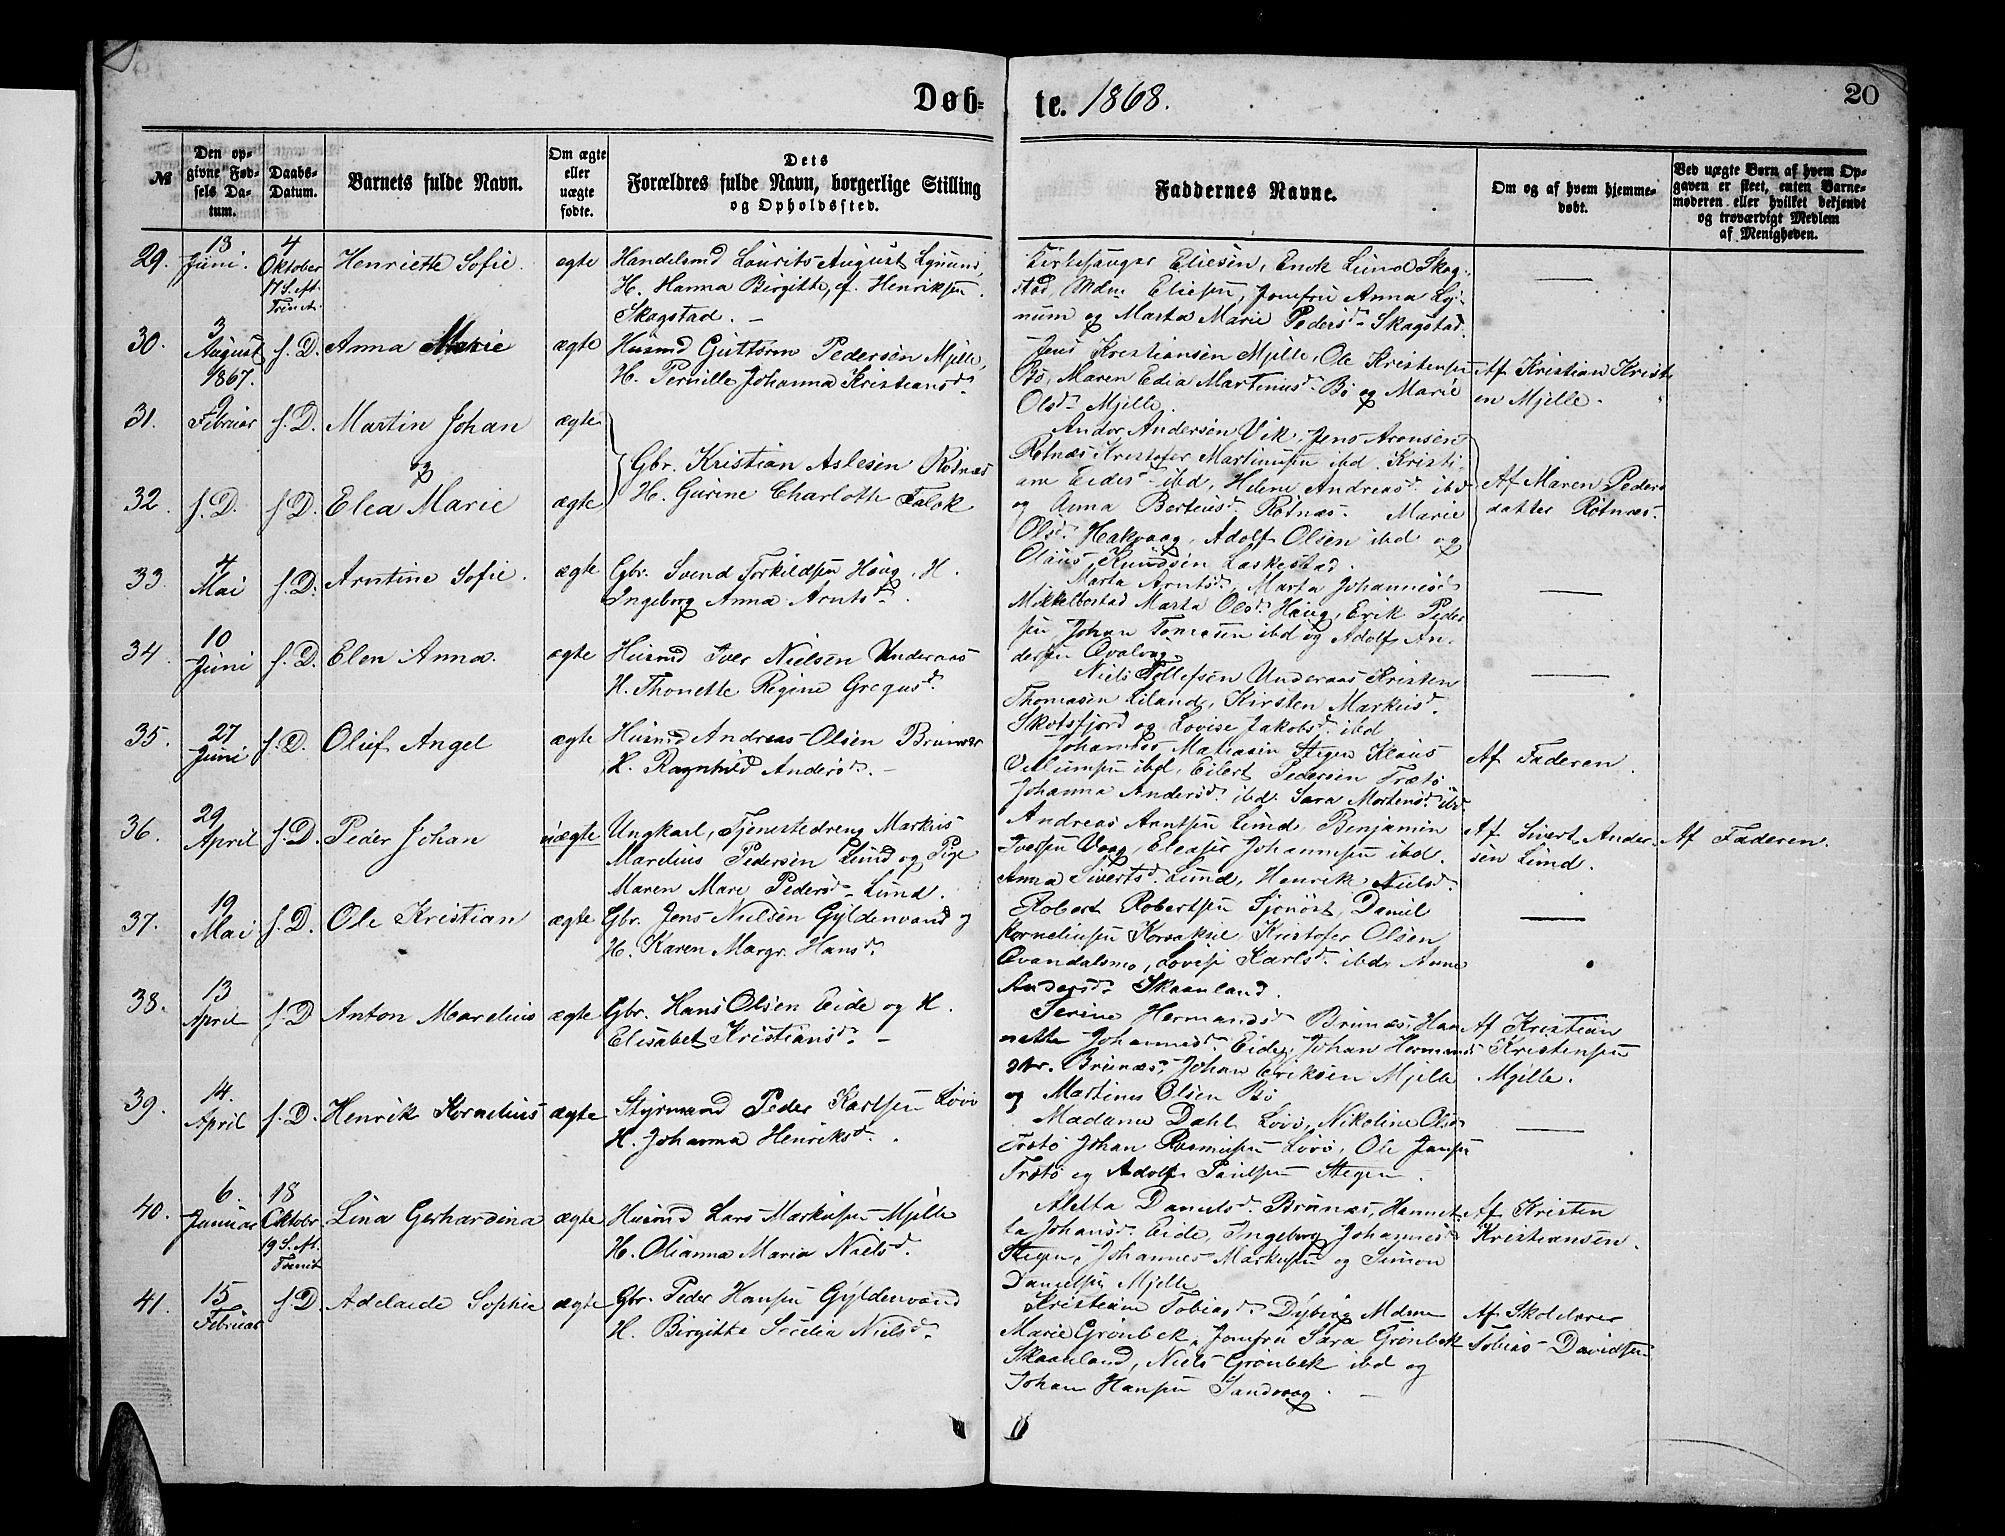 Døb-
te. 1868.
20
№
Den op-
givne Fød-
sels Da-
tum.
Daabs-
Datum.
Barnets fulde Navn.
Om ægte
eller
uægte
fødte.
Dets
Forældres fulde Navn, borgerlige Stilling
og Opholdssted.
Faddernes Navne.
Om og af hvem hjemme-
døbt.
Ved uægte Børn af hvem Op-
gaven er skeet, enten Barne-
moderen eller hvilket bekjendt
og troværdigt Medlem
af Menigheden.
29.
13
Juni.
4
Oktober
17 S. Aft.
Trinit.
Henriette Sofie.
ægte
Handelsmd Laurits August Lynum,
H. Hanna Birgitte, f. Henriksen.
Skagstad. —
Kirkesanger Eliesen, Enok Lund Skag-
stad, Mdm Eliesen, Jomfru Anna Ly-
num og Marta Marie Pedersd. Skagstad.
30.
3
August
1867.
s. D.
Anna Marie
ægte
Husmd Guttorm Pedersen Mjelle,
H. Pernille Johanna Kristiansd.
Jens Kristiansen Mjelle, Ole Kristensen
Bø, Maren Edia Martinusd. Bø og Marie
Olsd. Mjelle.
Af Kristian Krist
en Mjelle.
31.
9
Februar
s. D.
Martin Johan
og
ægte
Gbr. Kristian Aslesen Rotnæs
H. Gurine Charlotte Falck
Andor Andersen Vik, Jens Aronsen
Rotnæs, Kristofer Martinusen ibd. Kristi-
ane Eidesd. ibd, Helene Andreasd. ibd
og Anna Berteusd. Rotnæs. Marie
Olsd. Hakvaag, Adolf Olsen ibd og
Olaus Knudsen Laskestad.
Af Maren Peders
datter Rotnæs.
32.
s. D.
s. D.
Elea Marie
ægte
33.
4
Mai
s. D.
Arntine Sofie.
ægte
Gbr. Svend Torkildsen Haug, H.
Ingeborg Anna Arntsd.
Marta Arntsd. Marta Johannesd
Mikkelbostad Marta Olsd. Haug, Erik Peder
sen, Johan Tomasen ibd og Adolf An-
dersen
34.
10
Juni
s. D.
Elen Anna.
ægte
Husmd Iver Nielsen Underaas
H. Thonette Regine Gregusd.
Niels Tollefsen Underaas Kristen
Thomasen Liland, Kirsten Markusd.
Skotsfjord og Lovise Jakobsd. ibd
35.
27
Juni
s. D.
Oluf Angel
ægte
Husmd Andreas Olsen Brunæs
H. Ragnhild Andersd. —
Johannes Matiasen Stegen Klaus
Villumsen ibd, Eilert Pedersen Trætø
Johanna Andersd. ibd. Sara Mortensd. ibd
Af Faderen.
36.
29
April
s. D.
Peder Johan
uægte
Ungkarl, Tjenestedreng Markus
Mardius Pedersen Lund og Pige
Maren Mari Pedersd. Lund.
Andreas Arntsen Lund, Benjamin
Iversen Vaag, Eleaser Johannesen ibd.
Anna Sivertsd. Lund, Henrik Nielsd.
Af Sivert Ander-
sen Lund.
Af Faderen.
37.
19
Mai
s. D.
Ole Kristian
ægte
Gbr. Jens Nielsen Gyldenvand og
H. Karen Margr. Hansd.
Robert Robertsen Daniel
Kornelius­en Kristofer Olsen
Qvandalsmo, Lovise Karlsd. ibd, Anne
Andersd. Skaanland.
38.
13
April
s. D
Anton Marelius
ægte
Gbr. Hans Olsen Eide og H.
Elisabet Kristiansd. —
Serine Hermandsd. Brunæs, Han
nette Johannesd. Eide, Johan Hermands
Brunæs, Johan Eriksen Mjelle
og Martinus Olsen Bø
Af Kristian
Kristensen
Mjelle.
39.
14.
April
s. D
Henrik Kornelius
ægte
Styrmand Peder Karlsen Løvø
H. Johanna Henriksd.
Madame Dahl Løvø, Nikoline Olsd
Trætø Johan Rasmusen Løvø, Ole Jansen
Trætø og Adolf Paulsen Stegen.
40.
6.
Januar
18
Oktobr
19 S. Aft.
Trinit
Lina Gerhardina
ægte
Husmd Lars Markusen Mjelle
H. Olianna Maria Nielsd.
Aletta Danielsd. Brunæs, Hannet-
ta Johansd. Eide, Ingeborg Johannesd
Stegen, Johannes Markusen og Simon
Danielsen Mjelle
Af Kristen
Kristiansen.
41.
15
Februar
s. D.
Adelaide Sophie
ægte
Gbr. Peder Hansen Gyldenvand
H. Birgitte Secelia Nielsd.
Kristian Tobiasd. Dyberg Mdme
Marie Grønbek, Jomfru Sara Grønbek
Skaanland, Niels Grønbek ibd og
Johan Hansen Sandvaag. —
Af Skolelærer
Tobias Davidsen